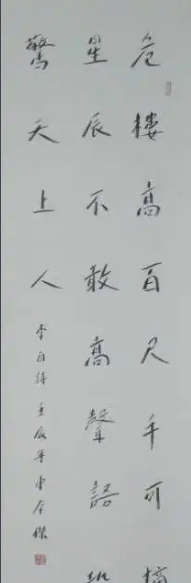 危樓高百尺手可摘
星辰不敢高聲語恐
驚天上人
李白詩壬辰年